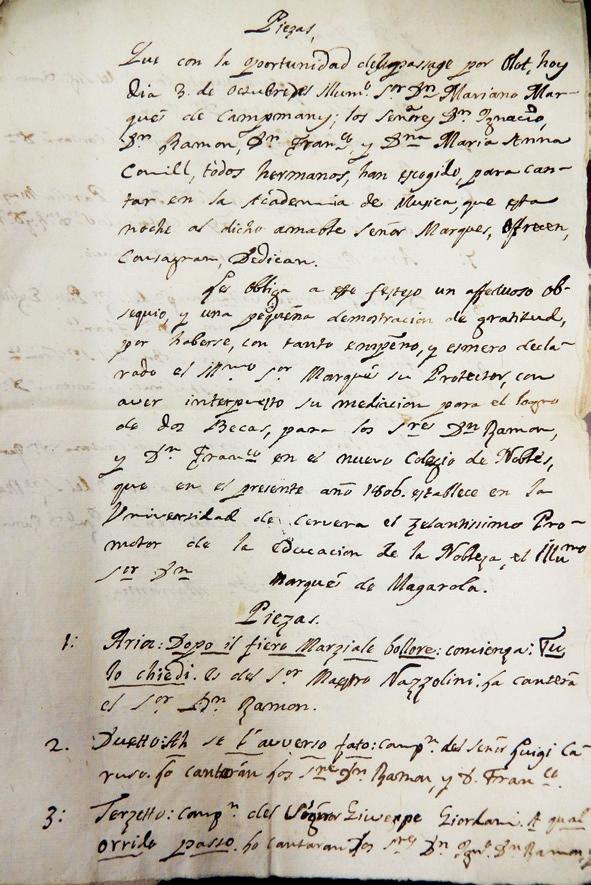 Piezas,
Que con la oportunidad del passage por Olot, hoy
dia 3. de octubre, el Illmo. Sor. Dn. Mariano Mar-
qués de Campmany; los señores Dn. Ignacio,
Dn. Ramon, Dn. Franco. y Dna. Maria Anna
Conill, todos hermanos, han escogido, para can-
tar en la Academia de Musica, que esta
noche al dicho amable señor Marques, Ofrecen,
Consagran, Dedican.
Les obliga a este festejo un affectuoso ob-
sequio, y una pequeña demostracion de gratitud,
por haberse, con tanto empeño, y esmero decla-
rado el Illmo. Sor. Marqués su Protector, con
aver interpuesto su mediacion para el logro
de dos Becas, para los Sres. Dn. Ramon,
y Dn. Franco. en el nuevo Colegio de Nobles,
que en el presente año 1806. establece en la
Universidad de Cervera el zelantissimo Pro-
motor de la educacion de la Nobleza, el Illmo
Sor. Dn. Marqués de Magarola.
Piezas.
1: Aria: Dopo il fiero Marziale bollore: comienza: Tu
lo chiedi. Es del Sor. Maestro Nazzolini. La cantará
el Sor. Dn. Ramon.
2. Duetto: Ah se l'avverso fato: compn. del señor Luigi Ca-
ruso. Lo cantarán los Sres. Dn. Ramon, y D. Franco.
3: Terzetto: compn. del Señor Giuseppe Giordani. A qual
orrido passo. Lo cantarán los Sres. Dn. Igno. Dn. Ramon, y